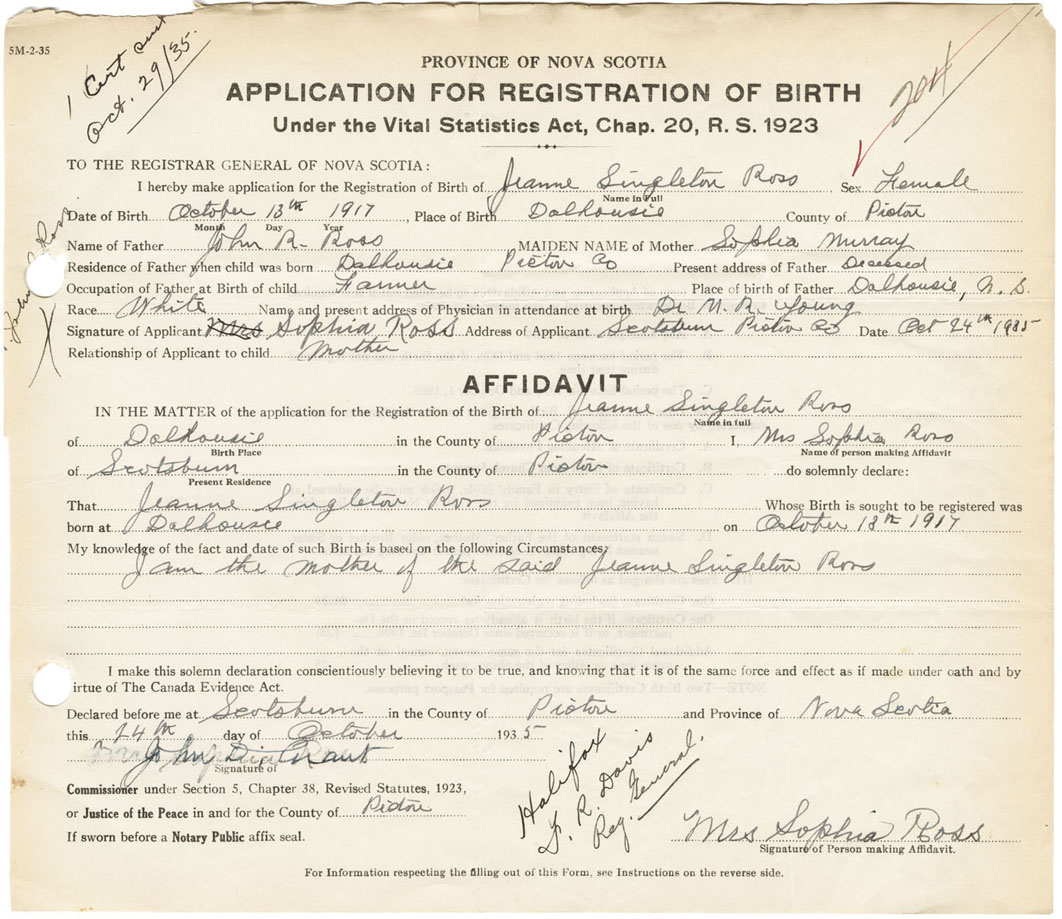 5M-2-35
1 Cert sent
Oct. 29/35.
204
PROVINCE OF NOVA SCOTIA
APPLICATION FOR REGISTRATION OF BIRTH
Under the Vital Statistics Act, Chap. 20, R. S. 1923
TO THE REGISTRAR GENERAL OF NOVA SCOTIA:
I hereby make application for the Registration of Birth of Jeanne Singleton Ross Sex Female
Name in Full
Date of Birth October 13th 1917, Place of Birth Dalhousie County of Pictou
Month Day Year
Name of Father John R. Ross MAIDEN NAME of Mother Sophia Murray
Residence of Father when child was born Dalhousie Pictou Co Present address of Father Deceased
Occupation of Father at Birth of child Farmer Place of birth of Father Dalhousie, N. S.
Race White Name and present address of Physician in attendance at birth Dr M. R. Young
Signature of Applicant Mrs Sophia Ross Address of Applicant Scotsburn Pictou Co Date Oct 24th 1935
Relationship of Applicant to child Mother
AFFIDAVIT
IN THE MATTER of the application for the Registration of the Birth of Jeanne Singleton Ross
Name in full
of Dalhousie in the County of Pictou I, Mrs Sophia Ross
Birth Place Name of person making Affidavit
of Scotsburn in the County of Pictou do solemnly declare:
Present Residence
That Jeanne Singleton Ross Whose Birth is sought to be registered was
born at Dalhousie on October 13th 1917
My knowledge of the fact and date of such Birth is based on the following Circumstances:
I am the mother of the said Jeanne Singleton Ross
I make this solemn declaration conscientiously believing it to be true, and knowing that it is of the same force and effect as if made under oath and by
irtue of The Canada Evidence Act.
Declared before me at Scotsburn in the County of Pictou and Province of Nova Scotia
this 24th day of October 1935
John D. Grant
Signature of
Commissioner under Section 5, Chapter 38, Revised Statutes, 1923,
or Justice of the Peace in and for the County of Pictou
If sworn before a Notary Public affix seal.
Halifax
F. R. Davis
Reg. General.
Mrs Sophia Ross
Signature of Person making Affidavit.
For Information respecting the filling out of this Form, see Instructions on the reverse side.